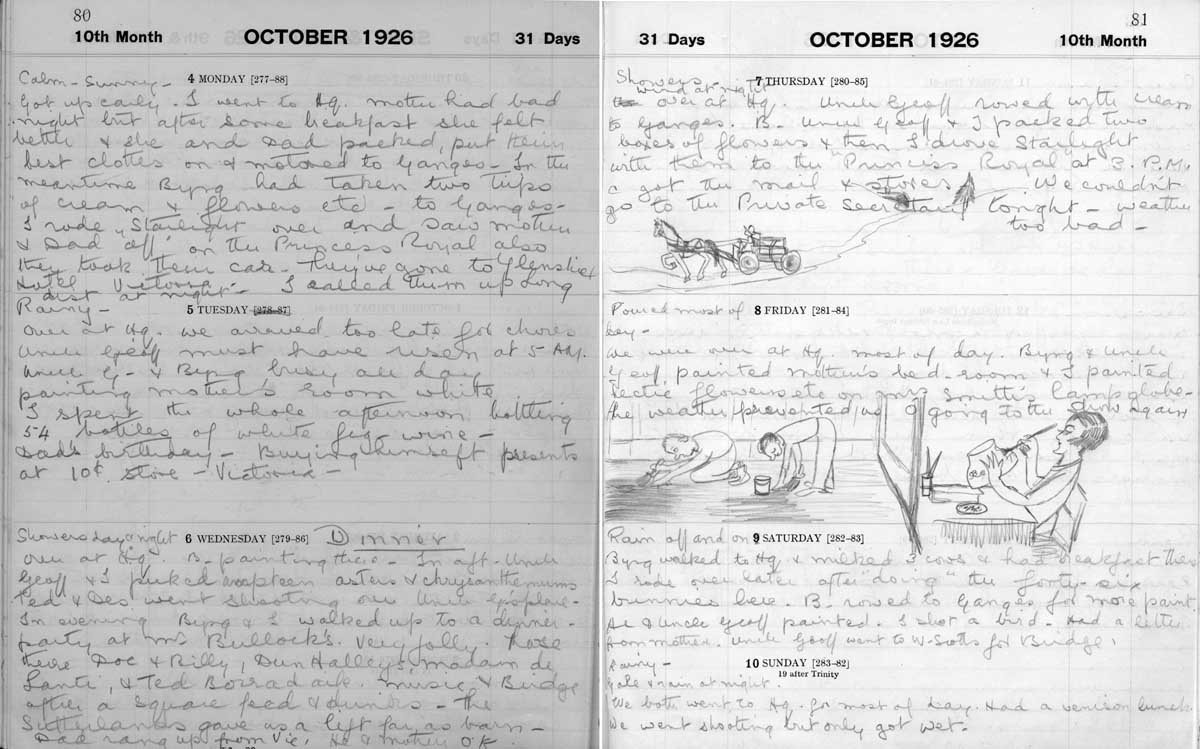 80
10th Month OCTOBER 1926 31 Days
4 MONDAY [277-88]
Calm - Sunny -
Got up early. I went to Hq. Mother had bad
night but after some breakfast she felt
better & she and Dad packed, put their
best clothes on & motored to Ganges - In the
meantime Byng had taken two trips
of cream & flowers etc - to Ganges -
I rode "Starlight" over and saw mother
& Dad off on the Princess Royal also
they took their car. They've gone to Glenshiel
Hotel Victoria - I called them up Long
dist at night -
5 TUESDAY [278-87]
Rainy -
Over at Hq. We arrived too late for chores
Uncle Geoff must have risen at 5 AM.
Uncle G - & Byng busy all day
painting mother's room white
I spent the whole afternoon bottling
54 bottles of white fig wine -
Dad's birthday - Buying himself presents
at 10¢ store - Victoria -
6 WEDNESDAY [279-86]
Showers day & night Dinner
Over at Hq. B - painting there - In aft. Uncle
Geoff & I picked asters & chrysanthemums
Ted & Des went shooting over Uncle
In evening Byng & I walked up to a dinner -
party at Mr Bullock's. Very jolly. Those
there Doc & Billy, Dun Halleys, madam de
& Ted Borradaile. Music & Bridge
after a square feed & drinks - The
Sutherlands gave us a lift far as barn -
Dad rang up from Vic. He & mother O.K.
81
31 Days OCTOBER 1926 10th Month
7 THURSDAY [280-85]
Showers -
wind at night
over at Hq. Uncle Geoff rowed with cream
to Ganges. B - Uncle Geoff & I packed two
boxes of flowers & then I drove Starlight
with them to the "Princess Royal" at 3. P.M.
& got the mail & stores We couldn't
go to the Private Secretary tonight - weather
too bad -
8 FRIDAY [281-84]
Poured most of
day -
We were over at Hq. most of day. Byng & Uncle
Geoff painted mother's bed-room & I painted
flowers etc on Mrs Smith's lamp globe -
the weather prevented us going to the again
9 SATURDAY [282-83]
Rain off and on
Byng walked to Hq & milked 3 cows & had breakfast there
I rode over later after doing "the forty-six
bunnies here. B - rowed to Ganges for more paint
He & Uncle Geoff painted. I shot a bird. Had a letter
from mother. Uncle Geoff went to W. Scotts for Bridge.
10 SUNDAY [283-82]
19 after Trinity
Rainy -
Gale & rain at night.
We both went to Hq. for most of day. Had a venison lunch.
We went shooting but only got wet -